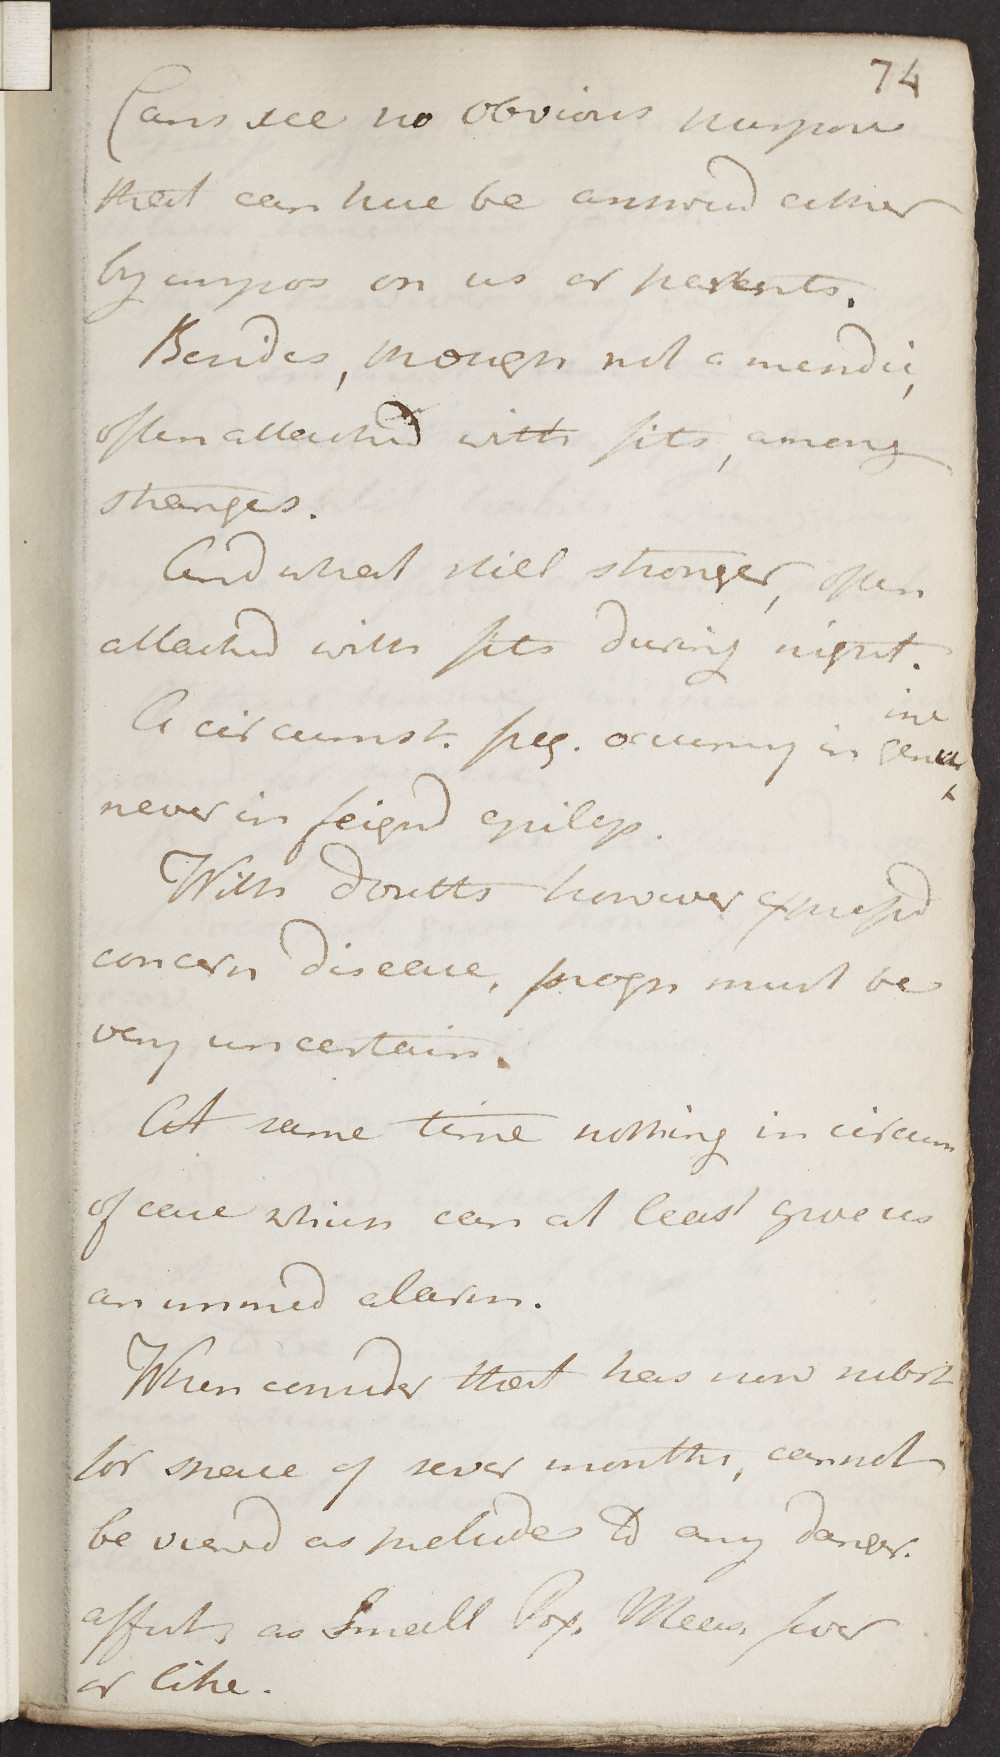 74
Can see no obvious purpose
that can here be answerd either
by impos on us or parents.
Besides, though not a mendic,
often attackd with fits, among
strangers.
And what still stronger, often
attackd with fits during night.
A circumst. freq. occurring in genuine
never in feignd epilep.
With doubts however expressd
concern disease, progn must be
very uncertain.
At same time nothing in circum
of case which can at least give us
an immed alarm.
When consider that has now subsist
for space of sever months, cannot
be viewd as preludes to any danger.
affect, as Small Pox, Meas, fever
or like.